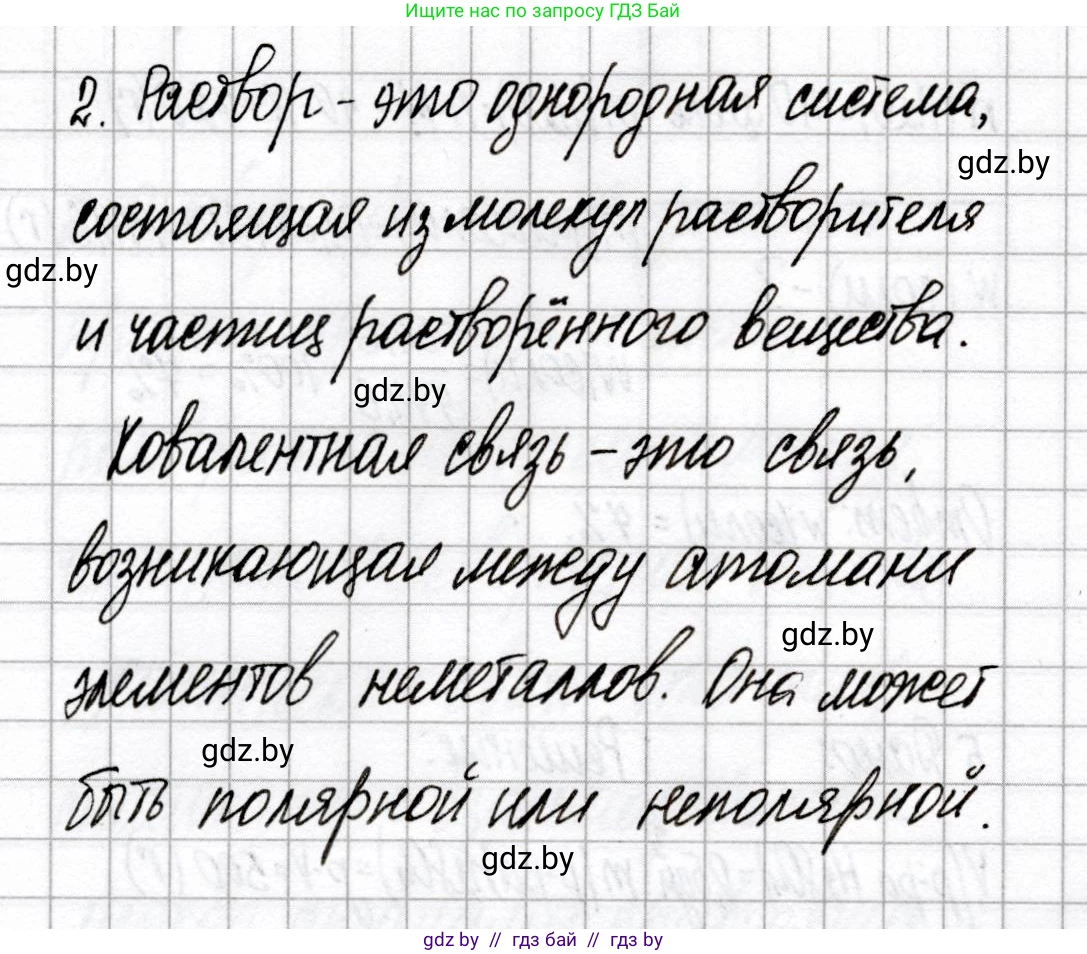 Ищите нас по запросу ГДЗ Бай
2. Раствор - это однородная система,
gdz.by
состоящая из молекул растворителя
gdz.by
и частиц растворённого вещества.
gdz.by
Ковалентная связь - это связь,
возникающая между атомами
gdz.by
элементов неметаллов. Она может
gdz.by
быть полярной или неполярной.
gdz.by
gdz.by // гдз бай // гдз by